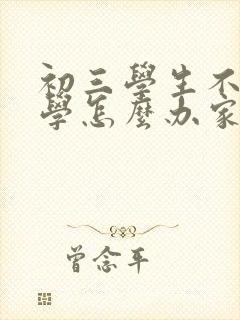 初三學生不
學怎麼办家
曾念平